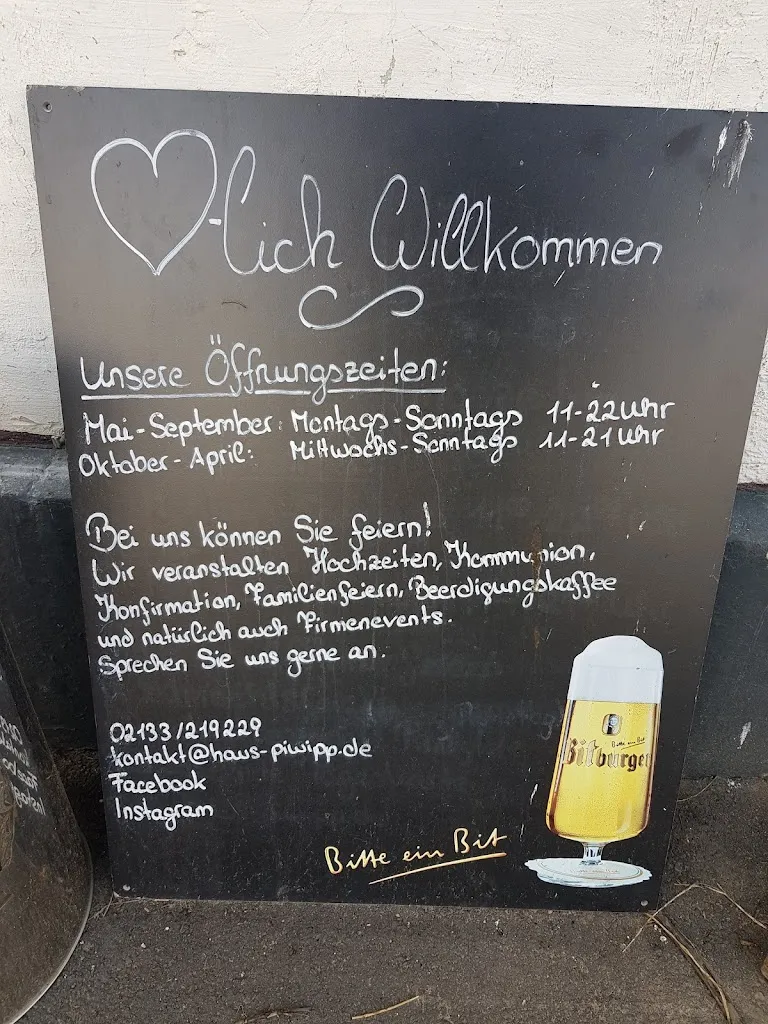 ♡-lich Willkommen
Unsere Öffnungszeiten:
Mai-September: Montags-Sonntags 11-22 Uhr
Oktober-April: Mittwochs-Sonntags 11-21 Uhr
Bei uns können Sie feiern!
Wir veranstalten Hochzeiten, Kommunion,
Konfirmation, Familienfeiern, Beerdigungskaffee
und natürlich auch Firmenevents.
Sprechen Sie uns gerne an.
02133/219229
kontakt@haus-piwipp.de
Facebook
Instagram
Bitte ein Bit
Bitburger
Bitte ein Bit